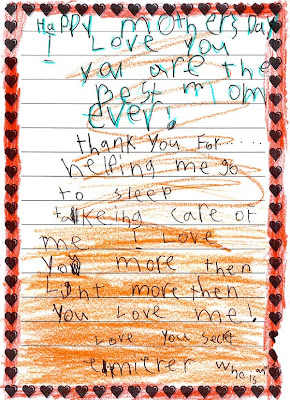 Happy mothers Day
I Love you
you are the
Best mom
ever!
thank you For......
helping me go
to sleep
takeing care of
me I Love
you more then
more then
you Love me!
Love you secret
who is